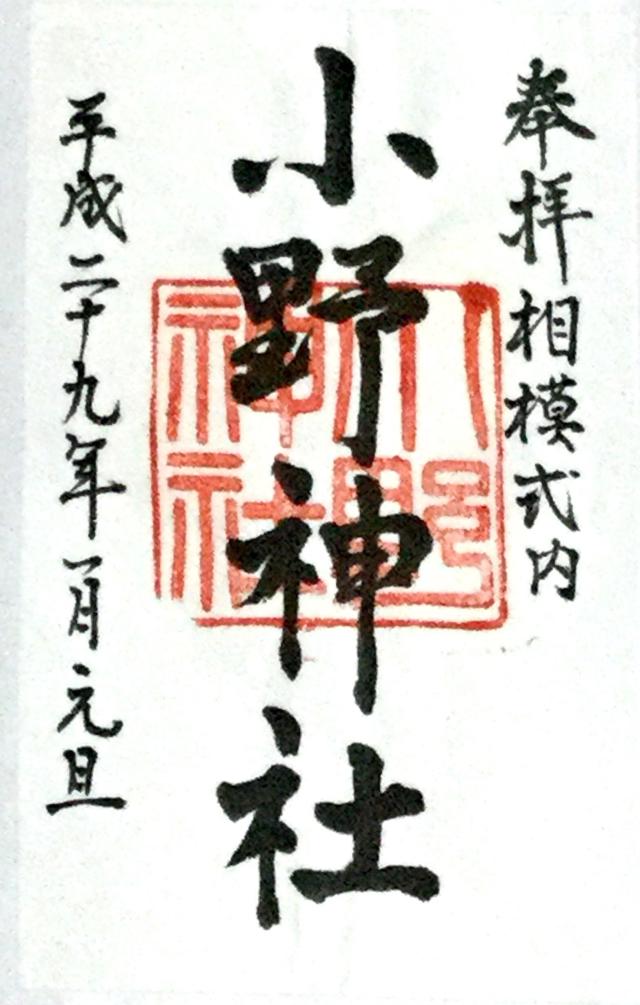 奉拝 相模式内
小野神社
小野
神社
平成二十九年一月元旦